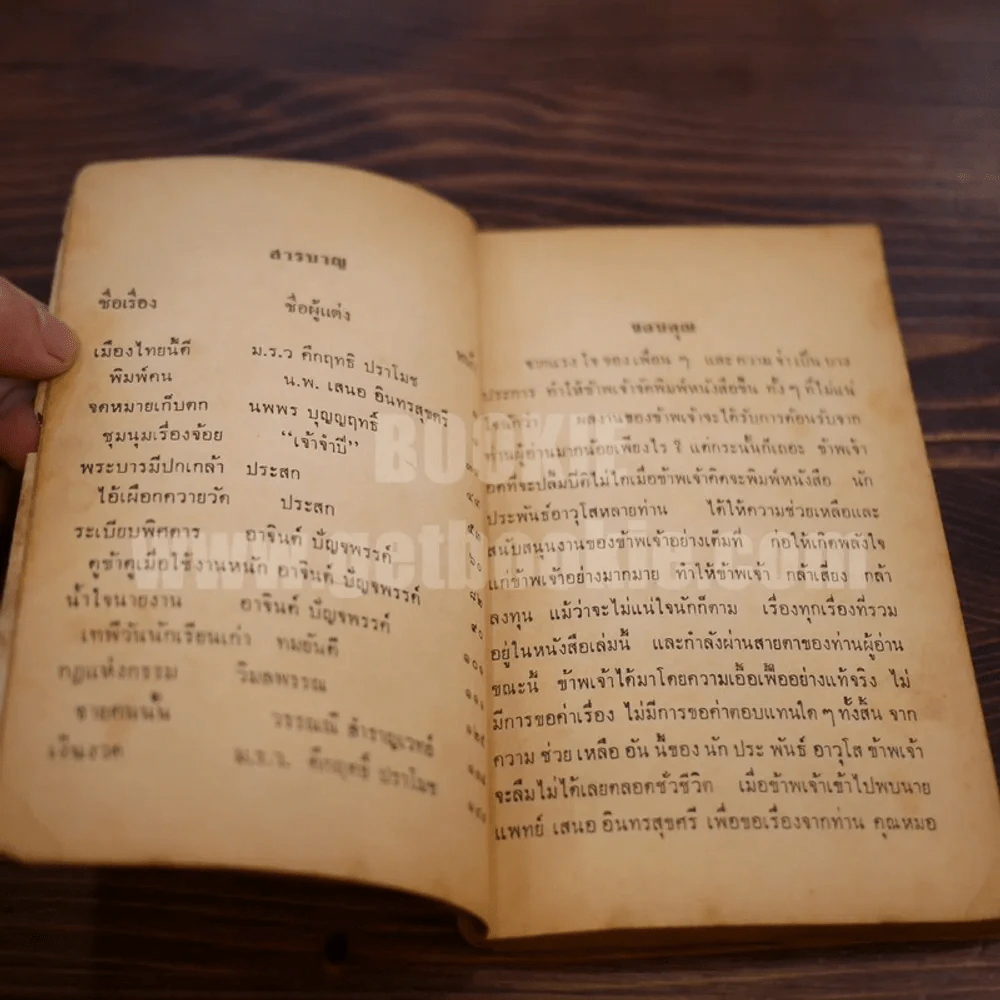 สารบาญ
ชื่อเรื่อง ชื่อผู้แต่ง
เมืองไทยนี้ดี ม.ร.ว คึกฤทธิ ปราโมช
พิมพ์คน น.พ. เสนอ อินทรสุขศรี
จดหมายเก็บตก นพพร บุญญฤทธิ์
ชุมนุมเรื่องจ้อย “เจ้าจำปี”
พระบารมีปกเกล้า ประสก
ไอ้เผือกควายวัด ประสก ๕๓
ระเบียบพิศดาร อาจินต์ ปัญจพรรค์ ๖๐
คูข้าคูเมื่อใช้งานหนัก อาจินต์ ปัญจพรรค์ ๘๒
น้ำใจนายงาน อาจินต์ ปัญจพรรค์ ๙๐
เทพีวันนักเรียนเก่า ทมยันตี ๑๐๑
กฎแห่งกรรม วิมลพรรณ ๑๑๑
ชายคนนั้น วรรณณี สำราญเวทย์
เงินงวด ม.ร.ว. คึกฤทธิ์ ปราโมช
ขอบคุณ
จากแรง ใจ ของ เพื่อน ๆ และ ความ จำเป็น บาง
ประการ ทำให้ข้าพเจ้าจัดพิมพ์หนังสือขึ้น ทั้ง ๆ ที่ไม่แน่
ใจนักว่า ผลงานของข้าพเจ้าจะได้รับการต้อนรับจาก
ท่านผู้อ่านมากน้อยเพียงไร ? แต่กระนั้นก็เถอะ ข้าพเจ้า
อดที่จะปลื้มปีติไม่ได้เมื่อข้าพเจ้าคิดจะพิมพ์หนังสือ นัก
ประพันธ์อาวุโสหลายท่าน ได้ให้ความช่วยเหลือและ
สนับสนุนงานของข้าพเจ้าอย่างเต็มที่ ก่อให้เกิดพลังใจ
แก่ข้าพเจ้าอย่างมากมาย ทำให้ข้าพเจ้า กล้าเสี่ยง กล้า
ลงทุน แม้ว่าจะไม่แน่ใจนักก็ตาม เรื่องทุกเรื่องที่รวม
อยู่ในหนังสือเล่มนี้ และกำลังผ่านสายตาของท่านผู้อ่าน
ขณะนี้ ข้าพเจ้าได้มาโดยความเอื้อเฟื้ออย่างแท้จริง ไม่
มีการขอค่าเรื่อง ไม่มีการขอค่าตอบแทนใด ๆ ทั้งสิ้น จาก
ความ ช่วย เหลือ อัน นี้ของ นัก ประ พันธ์ อาวุโส ข้าพเจ้า
จะลืมไม่ได้เลยตลอดชั่วชีวิต เมื่อข้าพเจ้าเข้าไปพบนาย
แพทย์ เสนอ อินทรสุขศรี เพื่อขอเรื่องจากท่าน คุณหมอ